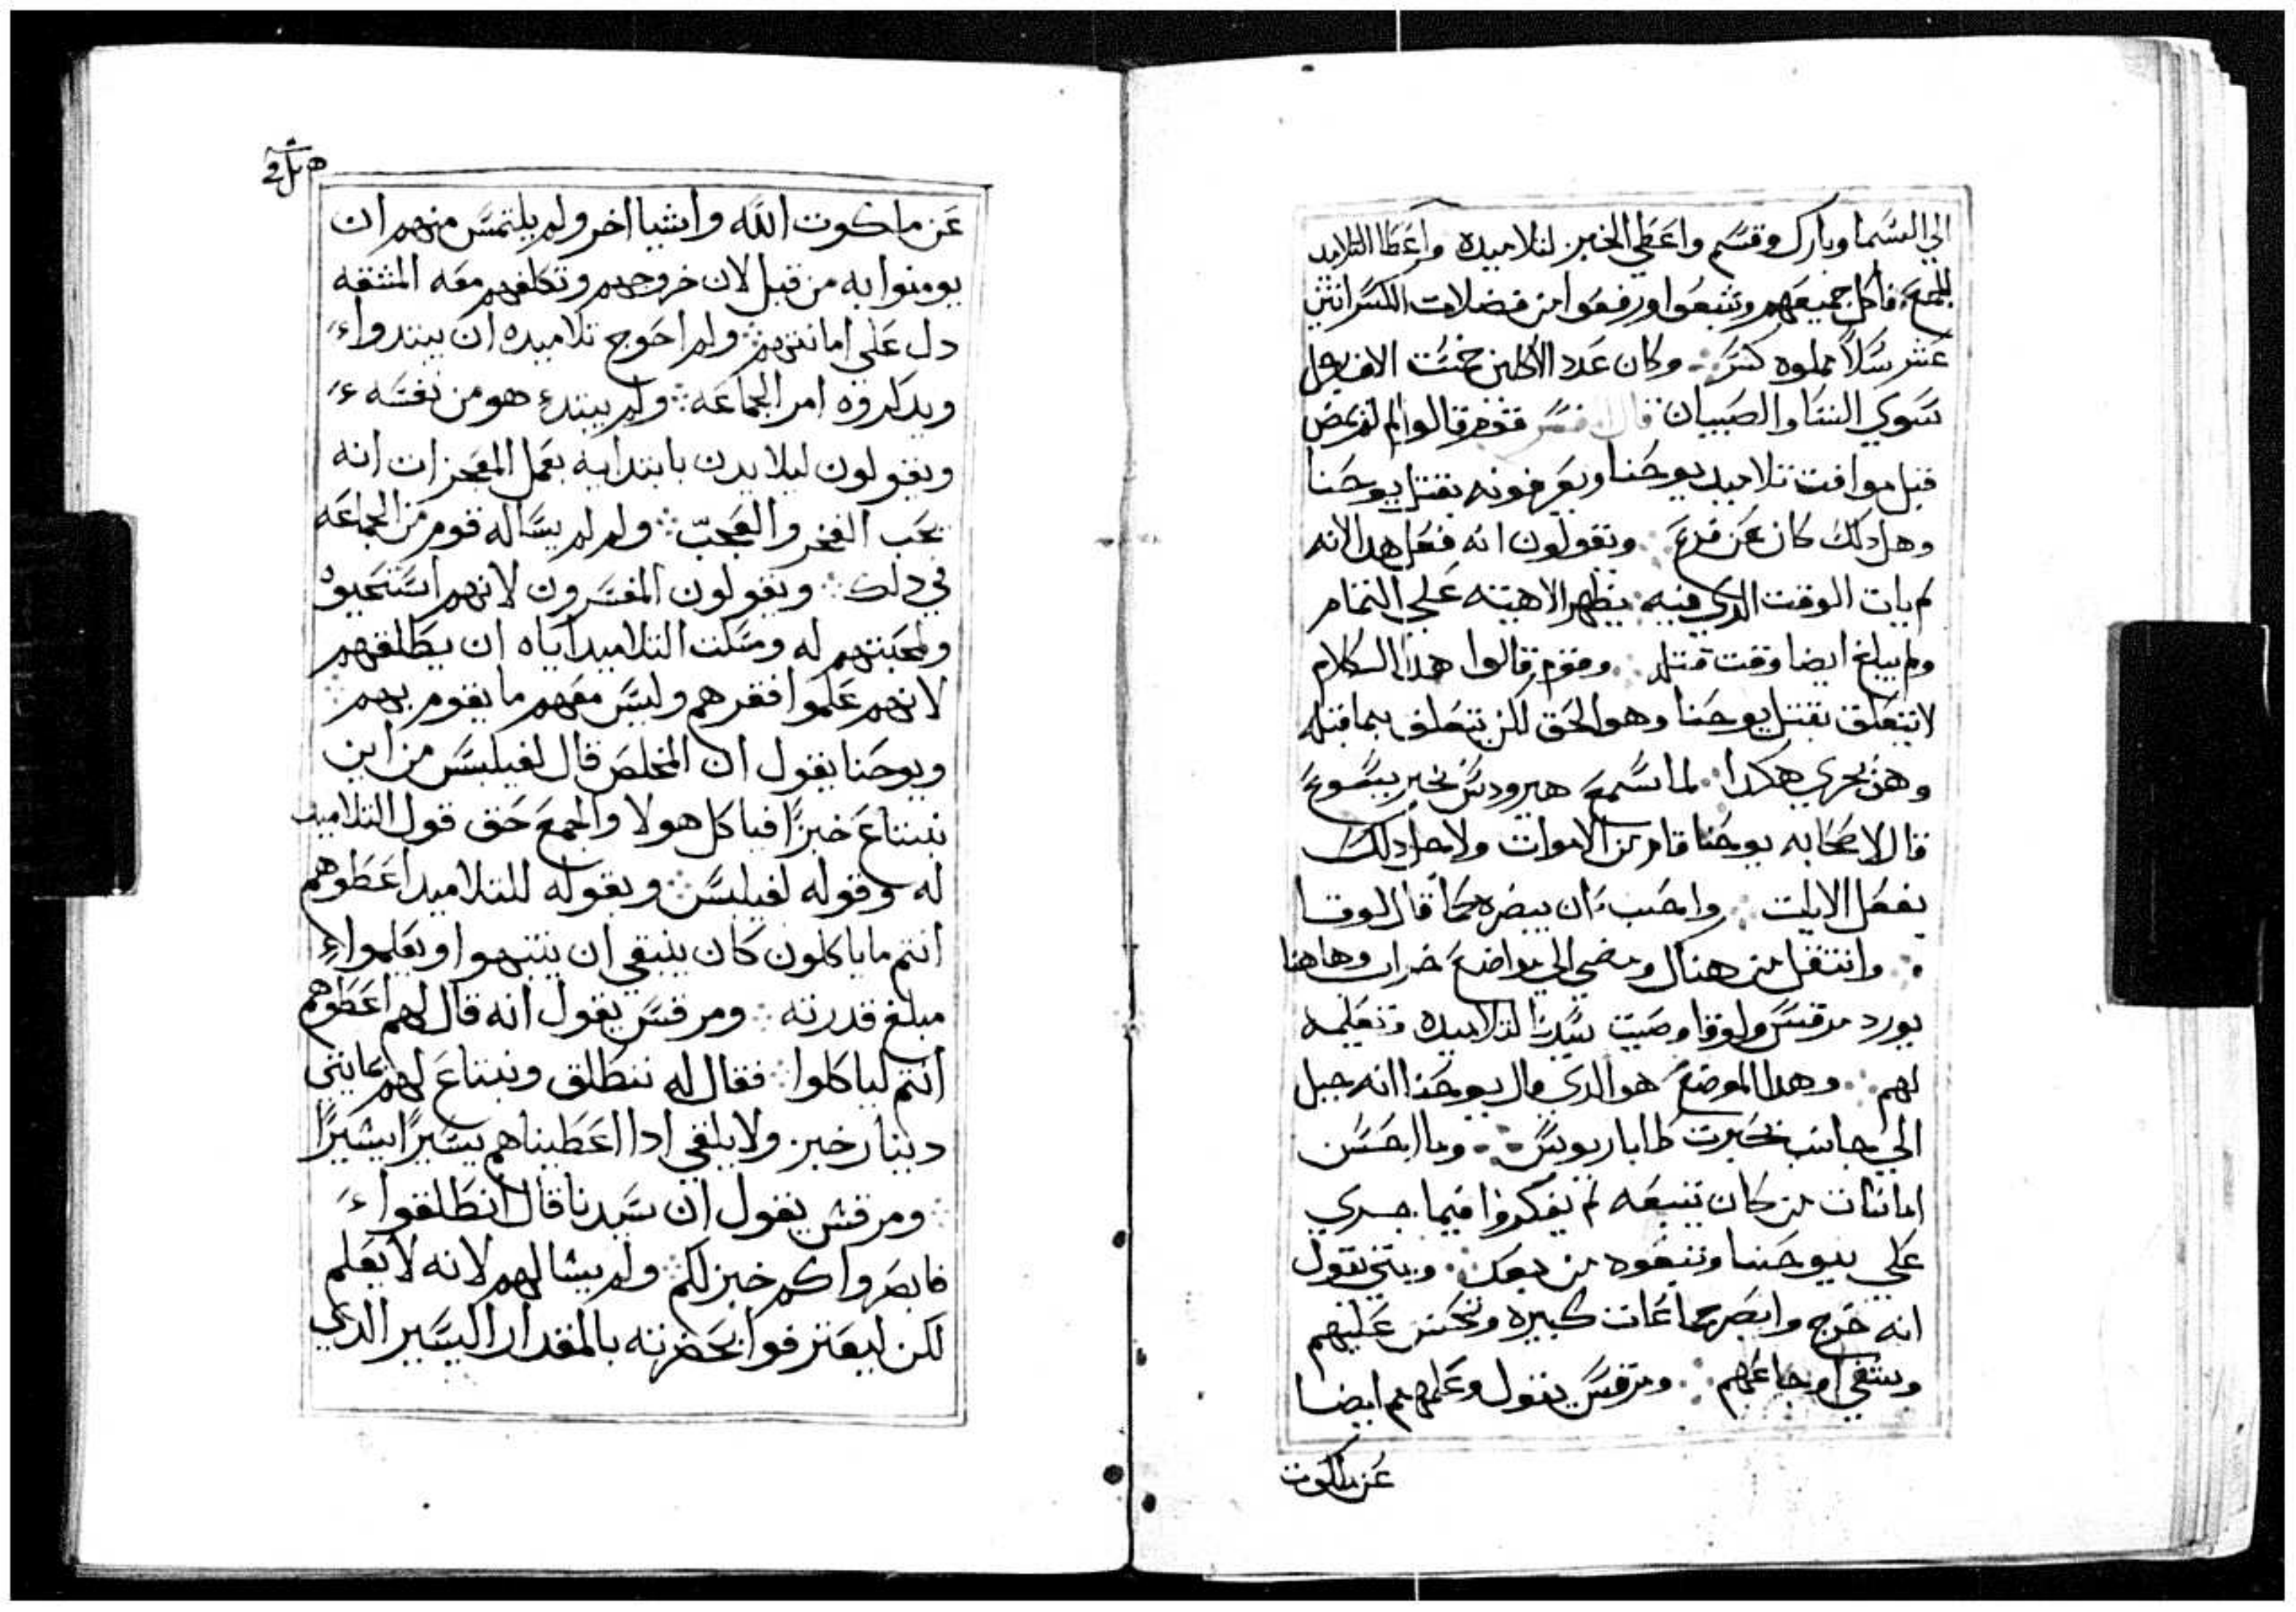 الي السما وبارك وقسم واعطي الخبز لتلاميده واعطا التلاميد
للجمع فاكل جميعهم وشبعوا ورفعوا من فضلات الكسر اثني
عشر سلاً مملوه كسر ∴ وكان عدد الاكلين خمست الاف رجل
سوي النسا والصبيان قال المفسر قوم قالوا لم لم يمض
قبل موافت تلاميد يوحنا ويعرفونه بقتل يوحنا
وهل دلك كان عن فزع ∴ ويقولون انه فعل هدا لانه
لم يات الوقت الدي فيه يظهر الاهيته علي التمام
ولم يبلغ ايضا وقت قتله ∴ وقوم قالوا هدا الكلام
لا يتعلق بقتل يوحنا وهو الحق لكن يتعلق بما قبله
وهو يجري هكدا ∴ لما سمع هيرودس خبر يسوع
قال لاصحابه يوحنا قام من الاموات ولاجل دلك
يفعل الايات ∴ واحب ان يبصره كما قال لوقا
∴ وانتقل من هناك ومضي الي مواضع خراب وهاهنا
يورد مرقس ولوقا وصيت سيدنا لتلاميده وتعليمه
لهم ∴ وهدا الموضع هو الدي قال يوحنا انه جبل
الي جانب بحيرت طاباريوس ∴ وما احسن
امانات من كان يتبعه لم يفكروا فيما جري
علي يوحنا وتبعوه من بعد ∴ ومتي يقول
انه خرج وابصر جماعات كبيره وتحنن عليهم
وشفي اوجاعهم ∴ ومرقس يقول وعلمهم ايضا
عن ملكوت
عن ملكوت الله واشيا اخر ولم يلتمس منهم ان
يومنوا به من قبل لان خروجهم وتكلفهم معه المشقه
دل علي امانتهم ∴ ولم احوج تلاميده ان يبتدوا
ويدكروه امر الجماعه ∴ ولم يبتدء هو من نفسه
ويقولون ليلا يدن بابتدايه بعمل المعجزات انه
يحب الفخر والعجب ∴ ولم لم يساله قوم من الجماعه
في دلك ∴ ويقولون المفسرون لانهم استحيوه
ولمحبتهم له ومسلت التلاميد اياه ان يطلقهم
لانهم علموا فقرهم وليس معهم ما يقوم بهم ∴
ويوحنا يقول ان المخلص قال لفيلبس من اين
نبتاع خبزاً فياكل هولا والجمع حق قول التلاميد
له وقوله لفيلبس ∴ وبقوله للتلاميد اعطوهم
انتم ما ياكلون كان ينبغي ان ينتبهوا ويعلموا
مبلغ قدرته ∴ ومرقس يقول انه قال لهم اعطوهم
انتم لياكلوا ∴ فقال له ننطلق ونبتاع لهم بمايتي
دينار خبز ولا يلفي ادا اعطيناهم يسيرًا يسيرًا
∴ ومرقس يقول ان سيدنا قال انطلقوا
فابصروا كم خبز لكم ∴ ولم يسالهم لانه لا يعلم
لكن ليعترفوا بحضرته بالمقدار اليسير الدي